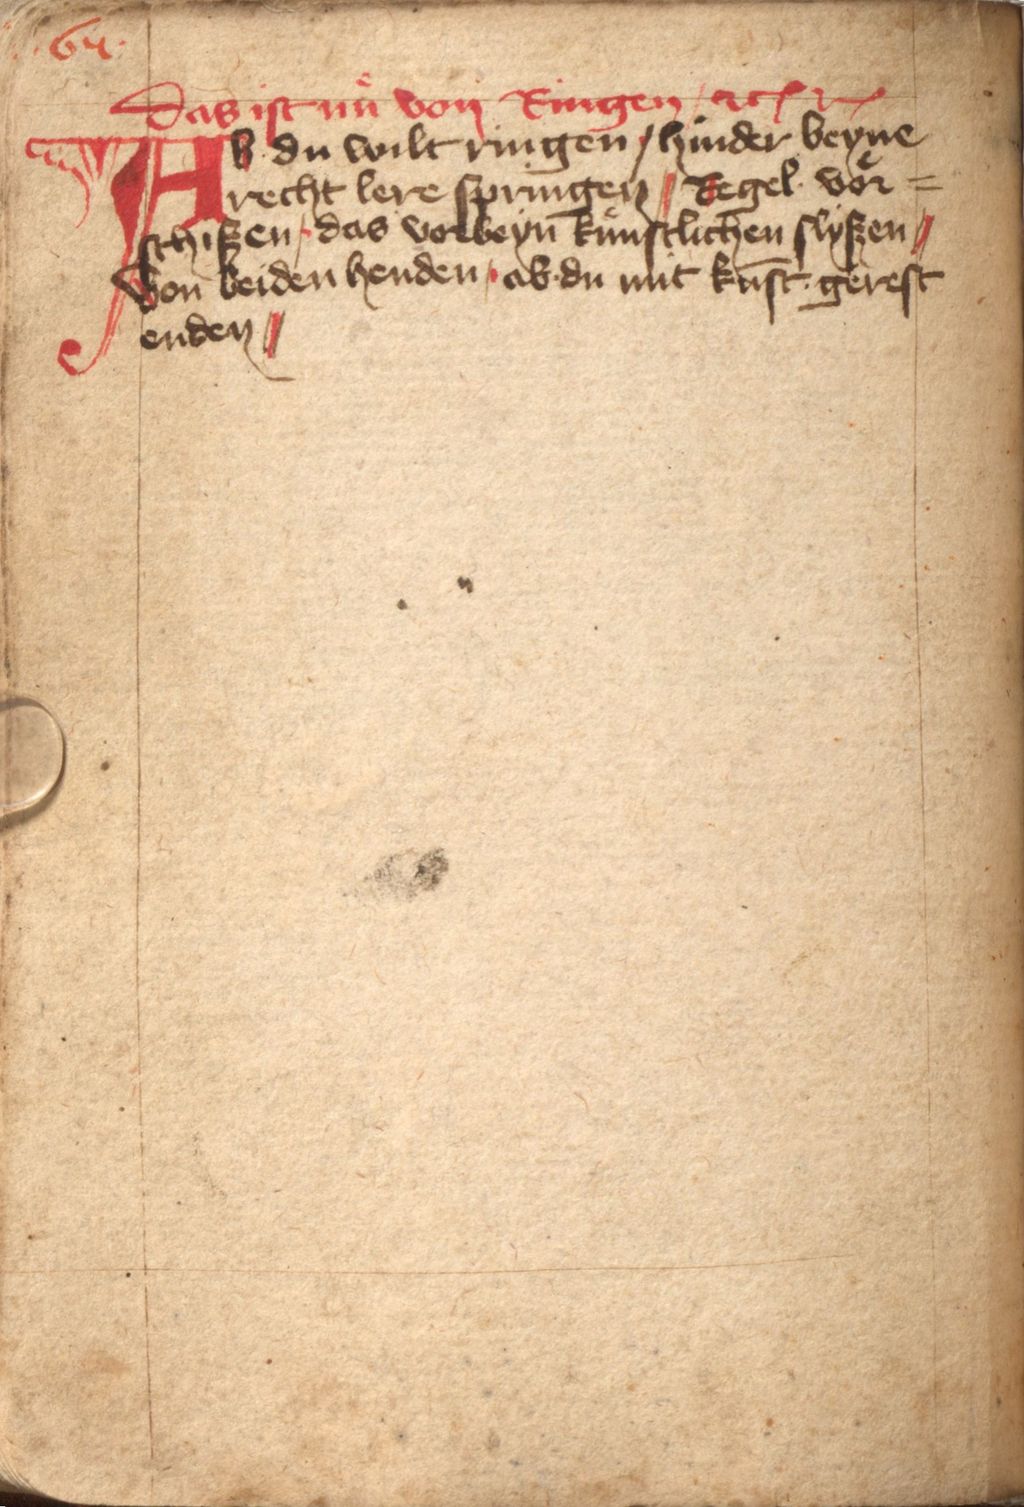 64
Das ist nů von Ringen / ꝛcꝭ
Ab du wilt ringen / hinder beyne
recht lere springen // Regel · vöʳ =
schißen / das vorbeyn̄ kůnstlichen slyßen //
Von beiden henden · ab · du mit kūst · gerest
enden //